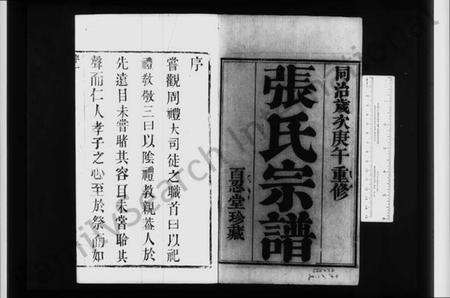 同治歲次庚午重修
張氏宗譜
百忍堂珍藏
序
嘗觀周禮大司徒之職首曰以祀
禮敎敬三曰以陰禮敎親蓋人於
先遠目未嘗睹其容耳未嘗聆其
聲而仁人孝子之心至於祭而如